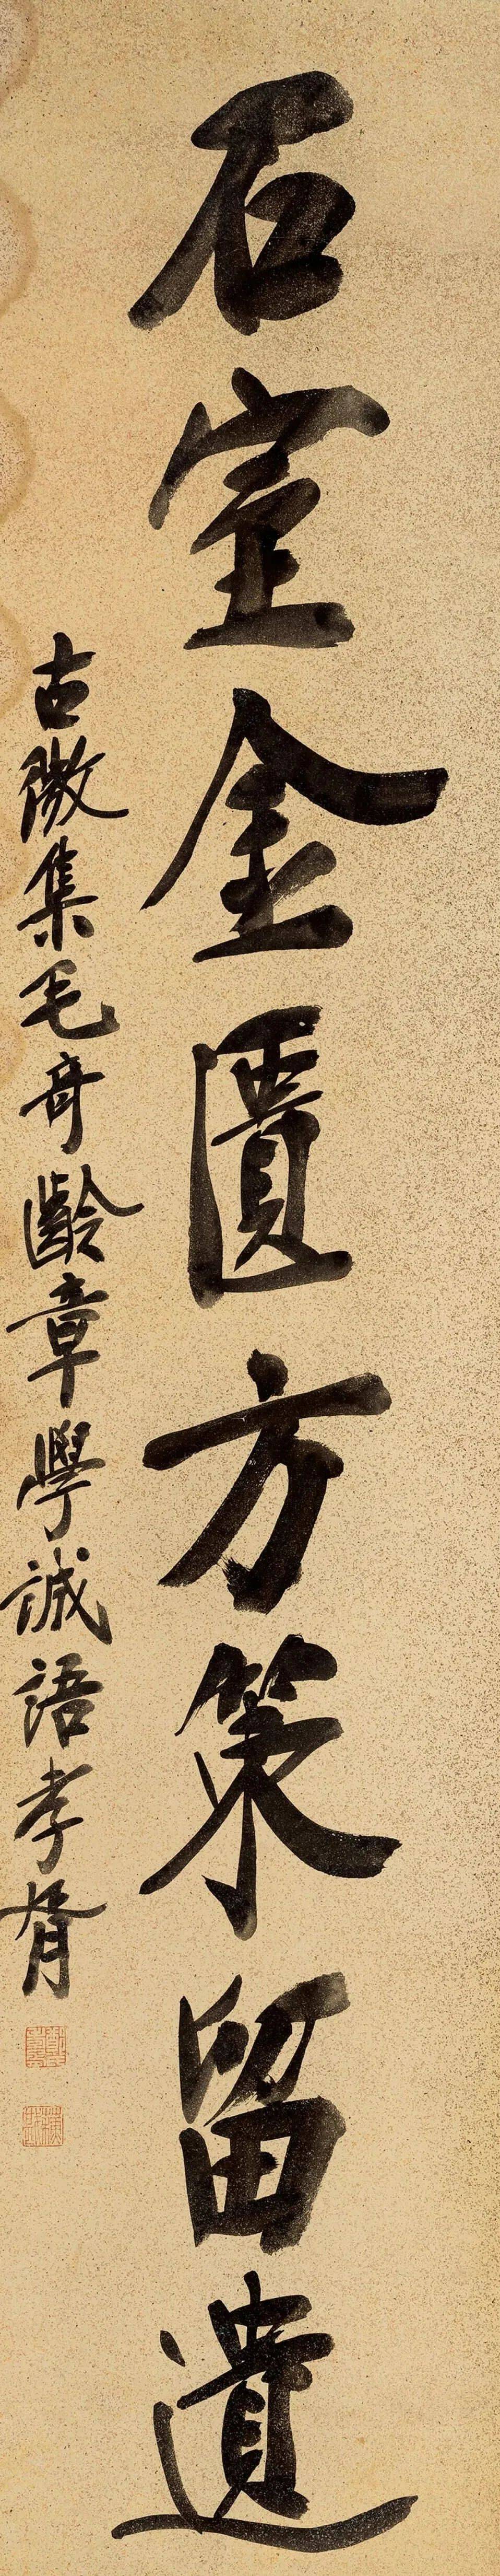 石室金匱方策留遺
古微集毛奇齡章學誠語孝胥